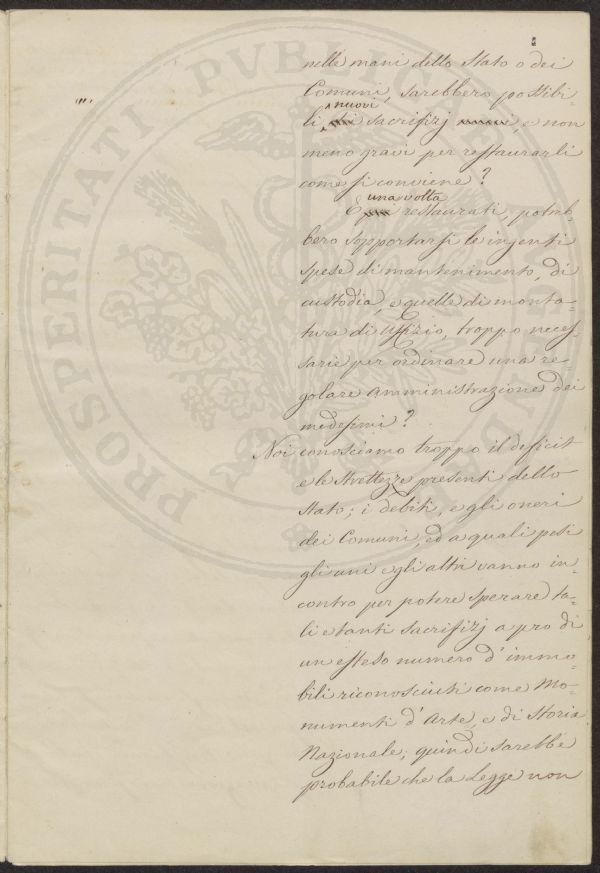 nelle mani dello Stato o dei
Comuni, sarebbero possibi-
li, nuovi sacrifizj, e non
meno gravi per restaurarli
come si conviene?
E una volta restaurati, potreb-
bero sopportarsi le ingenti
spese di mantenimento, di
custodia, e quelle di monta-
tura di Uffizio, troppo neces-
sarie per ordinare una re-
golare amministrazione dei
medesimi?
Noi conosciamo troppo il deficit
e le strettezze presenti dello
Stato; i debiti, e gli oneri
dei Comuni, ed a quali pesi
gli uni e gli altri vanno in-
contro per potere sperare ta-
li e tanti sacrifizj a pro di
un esteso numero d'immo-
bili riconosciuti come Mo-
numenti d'Arte, e di Storia
Nazionale; quindi sarebbe
probabile che la Legge non
PROSPERITATI PVBLICAE